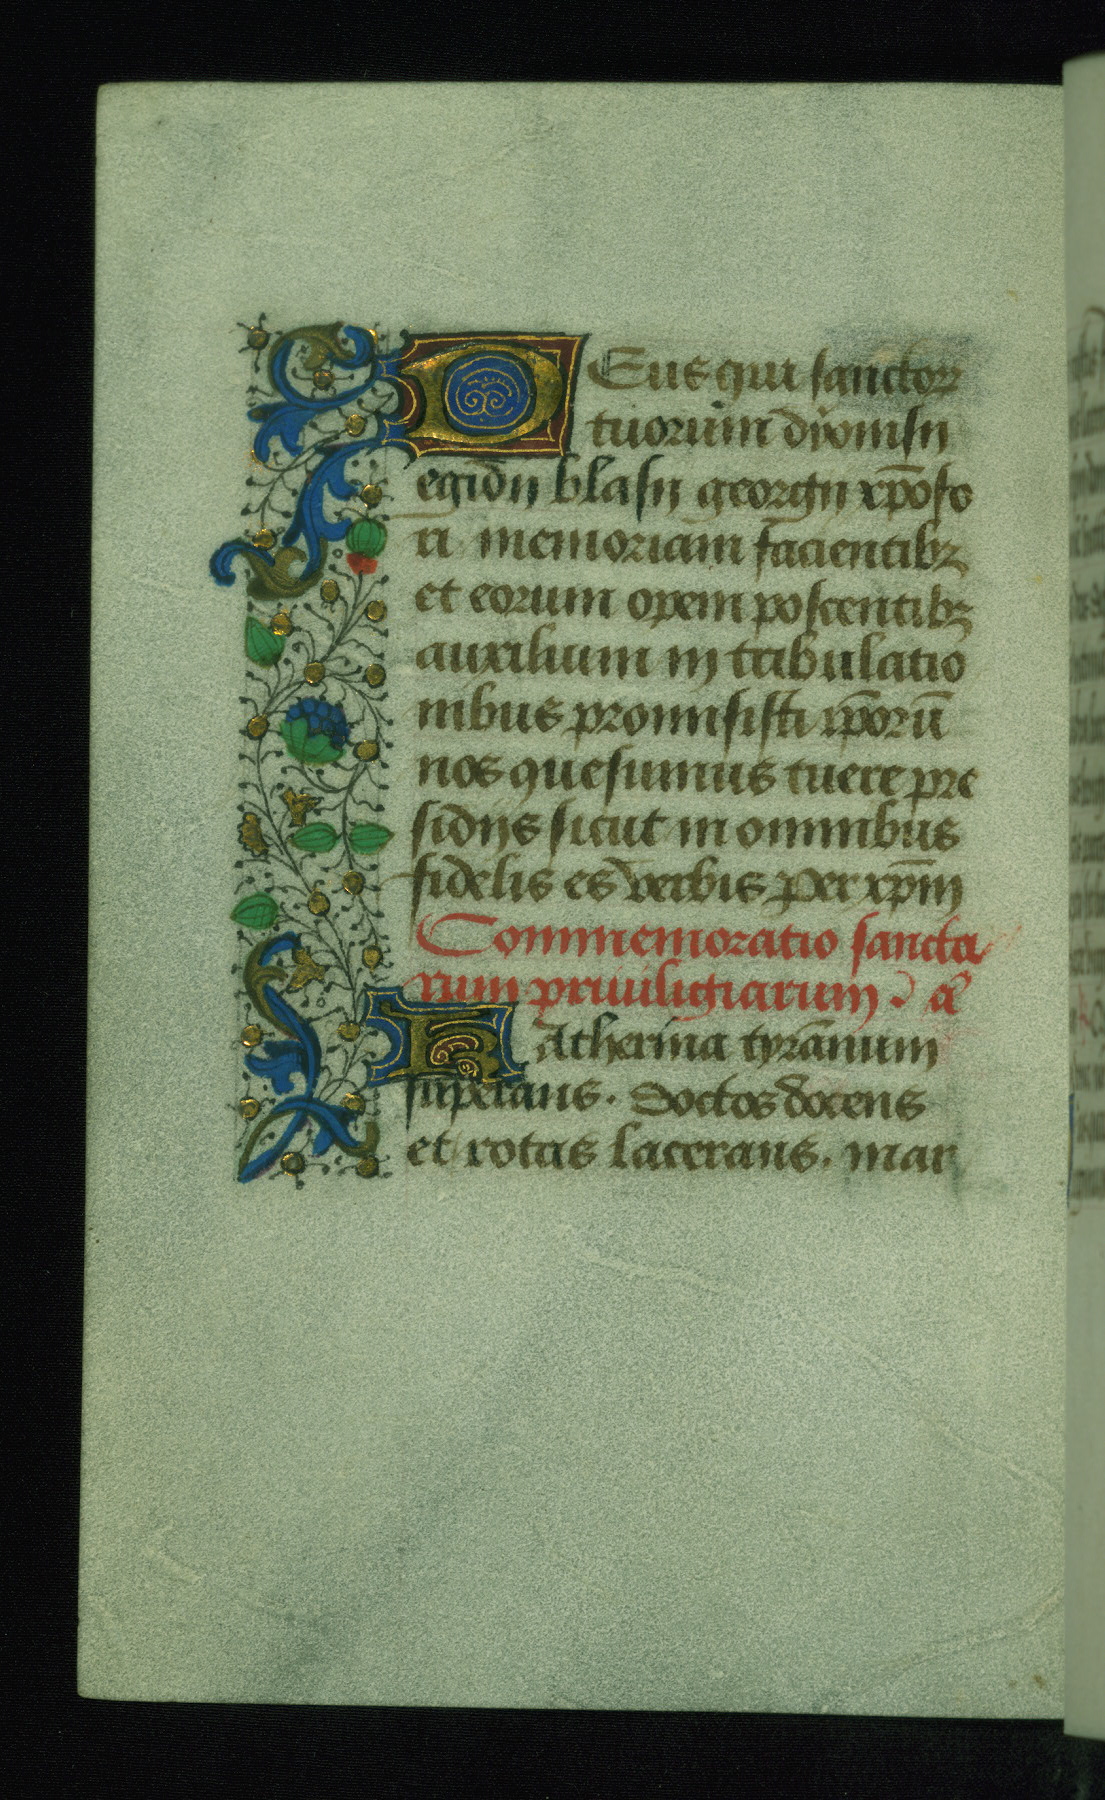 Deus qui sanctoꝝ
tuorum dyonisii
egidii blasii georgii xp̄ofo
ri memoriam facientibꝫ
et eorum opem poscentibꝫ
auxilium in tribulatio
nibus promisisti ip̄orū
nos quesumus tuere pre
sidiis sicut in omnibus
fidelis es verbis Per xp̄m
Commemoratio sancta
rum priuiligiarum. a͛
Katherina tyrānum
superans. Doctos docens
et rotas lacerans. mar